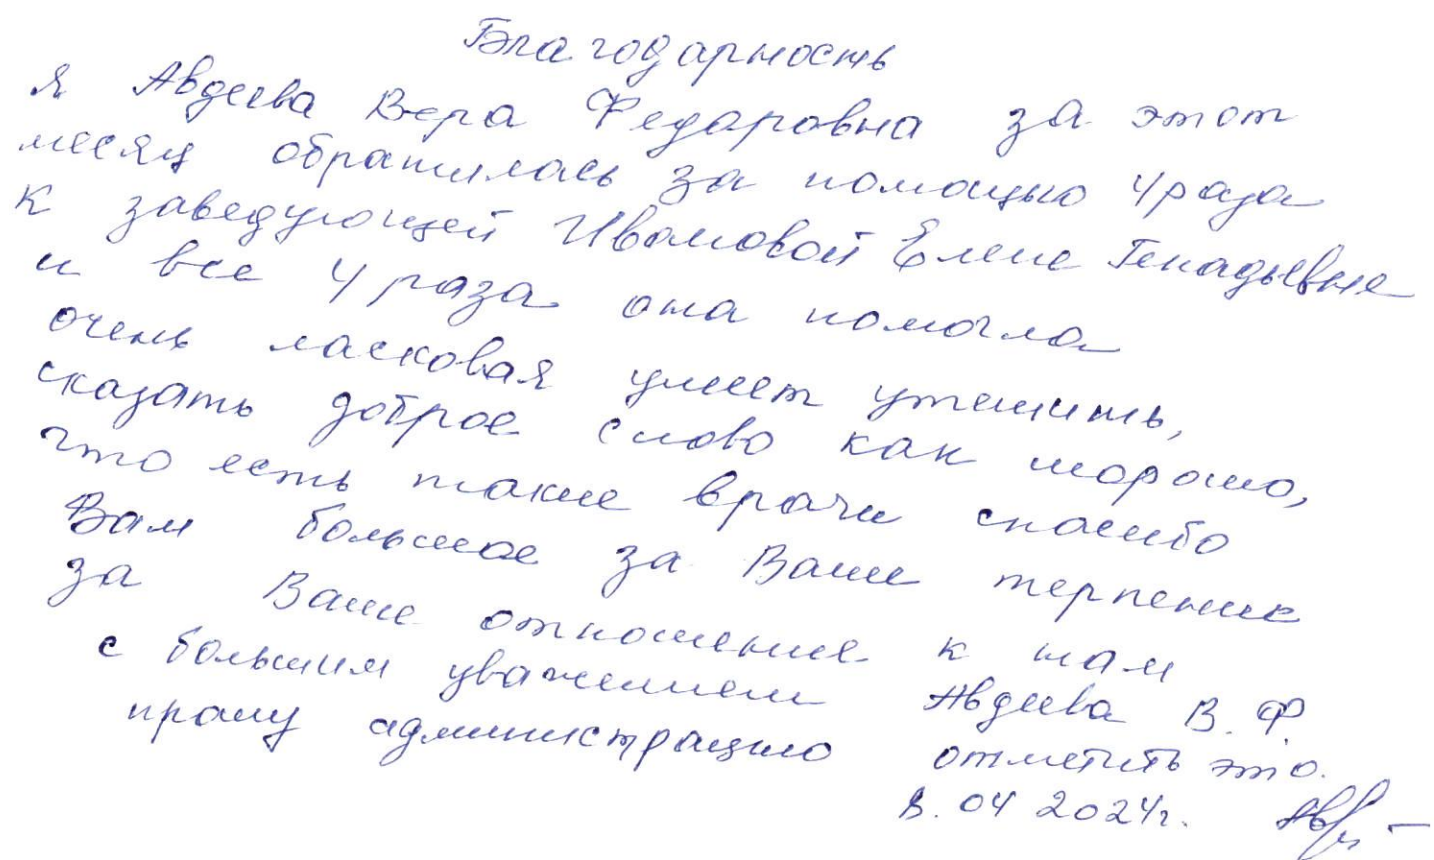 Благодарность
Я Авдеева Вера Федаровна за этот
месяц обратилась за помощью 4 раза
к заведующей Ивановой Елене Генадьевне
и все 4 раза она помогла
очень ласковая умеет утешить,
сказать доброе слово как хорошо,
что есть такие врачи спасибо
Вам большое за Ваше терпение
за Ваше отношение к нам
с большим уважением Авдеева В.Ф.
прошу администрацию отметить это.
8.04 2024г.